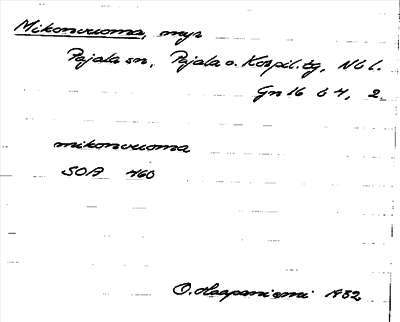 Mikonvuoma, myr
Pajala sn, Pajala o. Korpil. tg, Nbl.
Gn 16 64, 2.
mikonvuoma
SOA 460
O. Haapaniemi 1932